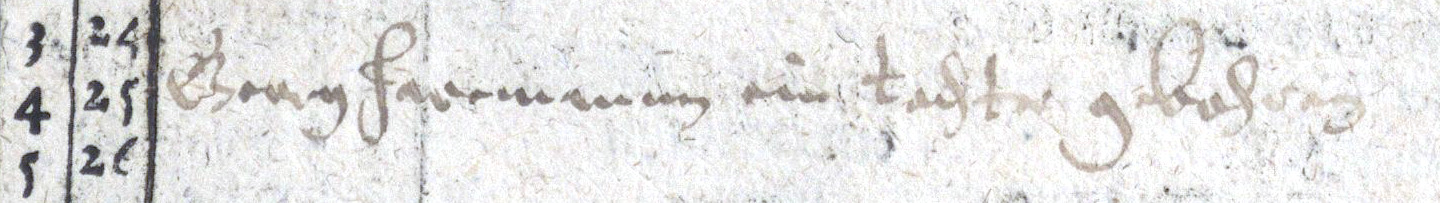 3 24
4 25 Georg Harmann ein tochter geboren
5 26